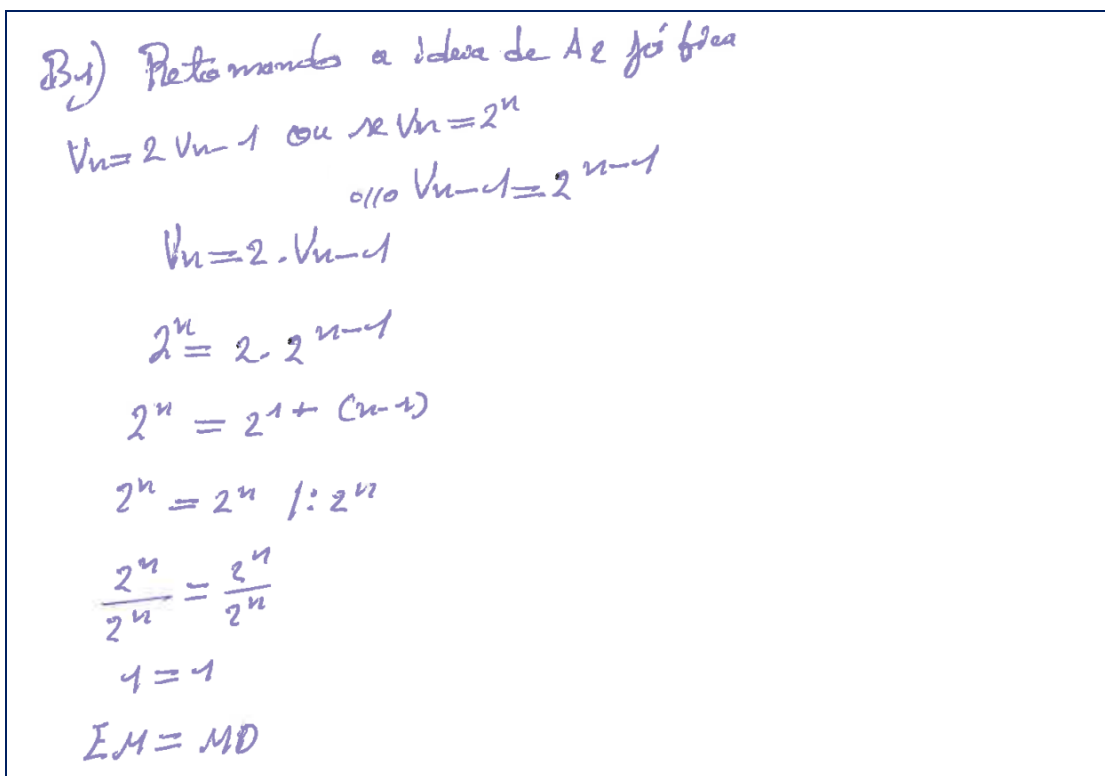 B1) Retomando a ideia de A2 já fica
Vn=2 Vn-1 ou se Vn=2^n
Vn-1=2^n-1
Vn=2.Vn-1
2^n = 2.2^n-1
2^n = 2^1+(n-1)
2^n = 2^n /:2^n
2^n/2^n = 2^n/2^n
1=1
EM=MD